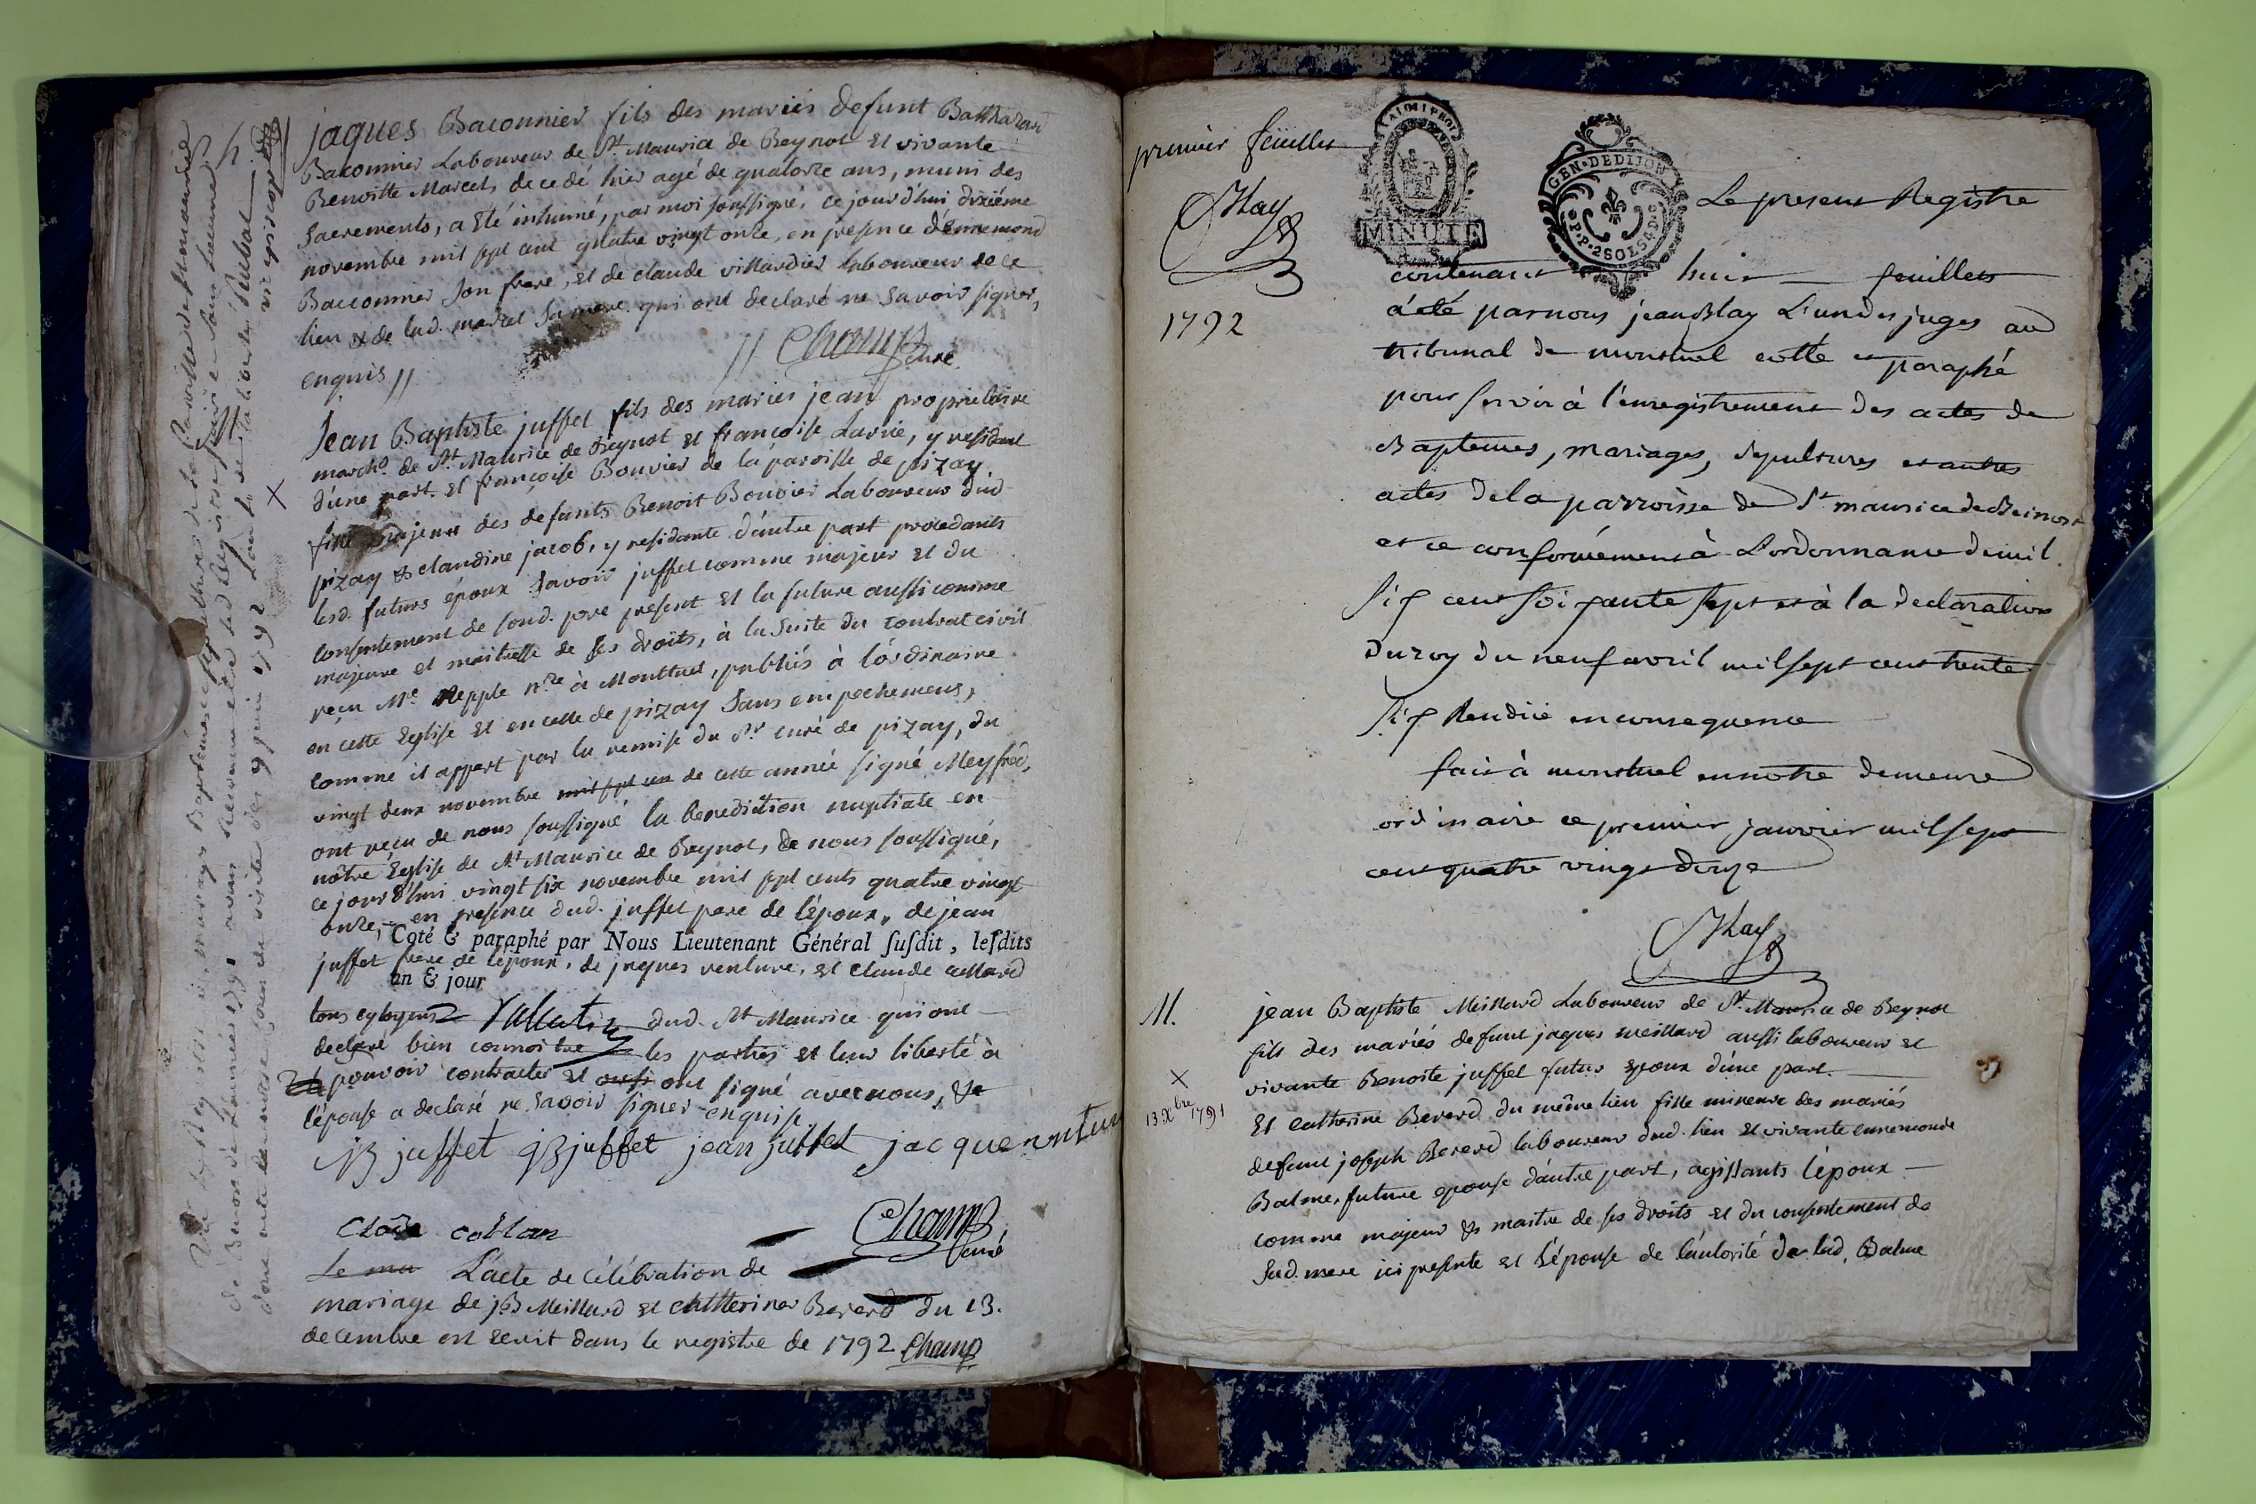 jaques Baconnier fils des mariés defunt Balthazard
Baconnier Laboureur de St. Maurice de Beynot et vivante
Benoitte Marcel, decedé hier agé de quatorze ans, muni des
Sacrements, a été inhumé, par moi soussigné, ce jourd'hui dixiéme
novembre mil sept cent quatre vingt onze, en presence d'Ennemond
Baconnier son frere, et de claude villardier Laboureur de ce
lieu & de lad. marcel sa mere qui ont declaré ne savoir signer,
enquis //
// Champ
curé
Jean Baptiste juffet fils des mariés jean proprietaire
march. de St. Maurice de Beynot et françoise Larue, y residant
d'une part. et françoise Bouvier de la paroisse de pizay,
fille majeure des defunts Benoit Bouvier Laboureur dud.
pizay & claudine jacob, y residante d'autre part procedants
lesd. futurs époux savoir juffet comme majeur et du
consentement de sond. pere present et la future aussi comme
majeure et maitresse de ses droits, à la suite du contrat civil
reçu Me. Repple nre. à Montluel, publiés à l'ordinaire
en cette Eglise et en celle de pizay sans empechemens,
comme il appert par la remise du Sr. curé de pizay, du
vingt deux novembre mil sept cen de cette année signé Meyfred,
ont reçu de nous soussigné la benediction nuptiale en
nôtre Eglise de St. Maurice de Beynot, de nous soussigné,
ce jourd'hui vingt six novembre mil sept cents quatre vingt
onze, en presence dud. juffet pere de l'époux, de jean
Coté & paraphé par Nous Lieutenant Général susdit, lesdits
juffet frere de l'époux, de jaques venture, et claude
an & jour
tous dud. St. Maurice qui ont
declaré bien connoitre les parties et leur liberté à
pouvoir contracter et ont signé avec nous, &
l'épouse a declaré ne savoir signer enquise.
jB juffet jB juffet jean juffet jacque
Champ
curé
L'acte de célébration de
mariage de jB Meillard et Catherine Bererd du 13.
decembre est ecrit dans le registre de 1792 Champ
premier feuillet
Blay
1792
MINUTE
GEN. DE DIJON
P.P. 2 SOLS 4 D.
Le present Registre
contenant huit feuillets
a été par nous jean Blay L'un des juges au
tribunal de montluel cotté et paraphé
pour servir à l'enregistrement des actes de
Baptemes, mariages, sepultures et autres
actes de la parroisse de St maurice de Beinost
et ce conformément à L'ordonnance de mil
six cent soixante sept et à la declaration
du roy du neuf avril mil sept cent trente
six Rendüe en consequence
fait à montluel en notre demeure
ordinaire ce premier janvier mil sept
cent quatre vingt douze
Blay
M.
13 Xbre 1791
jean Baptiste Meillard Laboureur de St. Maurice de Beynot
fils des mariés defunt jaques meillard aussi laboureur et
vivante Benoite juffet futur epoux d'une part.
Et catherine Bererd du même lieu fille mineure des mariés
defunt joseph Bererd laboureur dud. lieu et vivante ennemonde
Balme, future epouse d'autre part, agissants l'époux
comme majeur & maitre de ses droits et du consentement de
sad. mere ici presente et l'épouse de l'autorité de lad. Balme